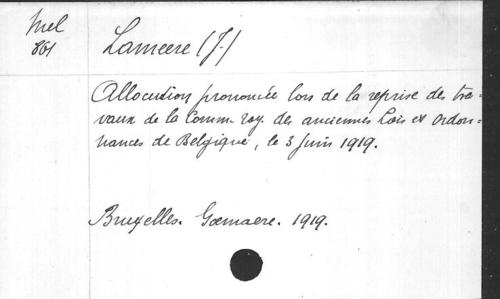 Mel
861
Lameere (J.)
Allocution prononcée lors de la reprise des tra-
vaux de la Comm. roy. des anciennes Lois et Ordon-
nances de Belgique, le 3 Juin 1919.
Bruxelles. Goemaere. 1919.